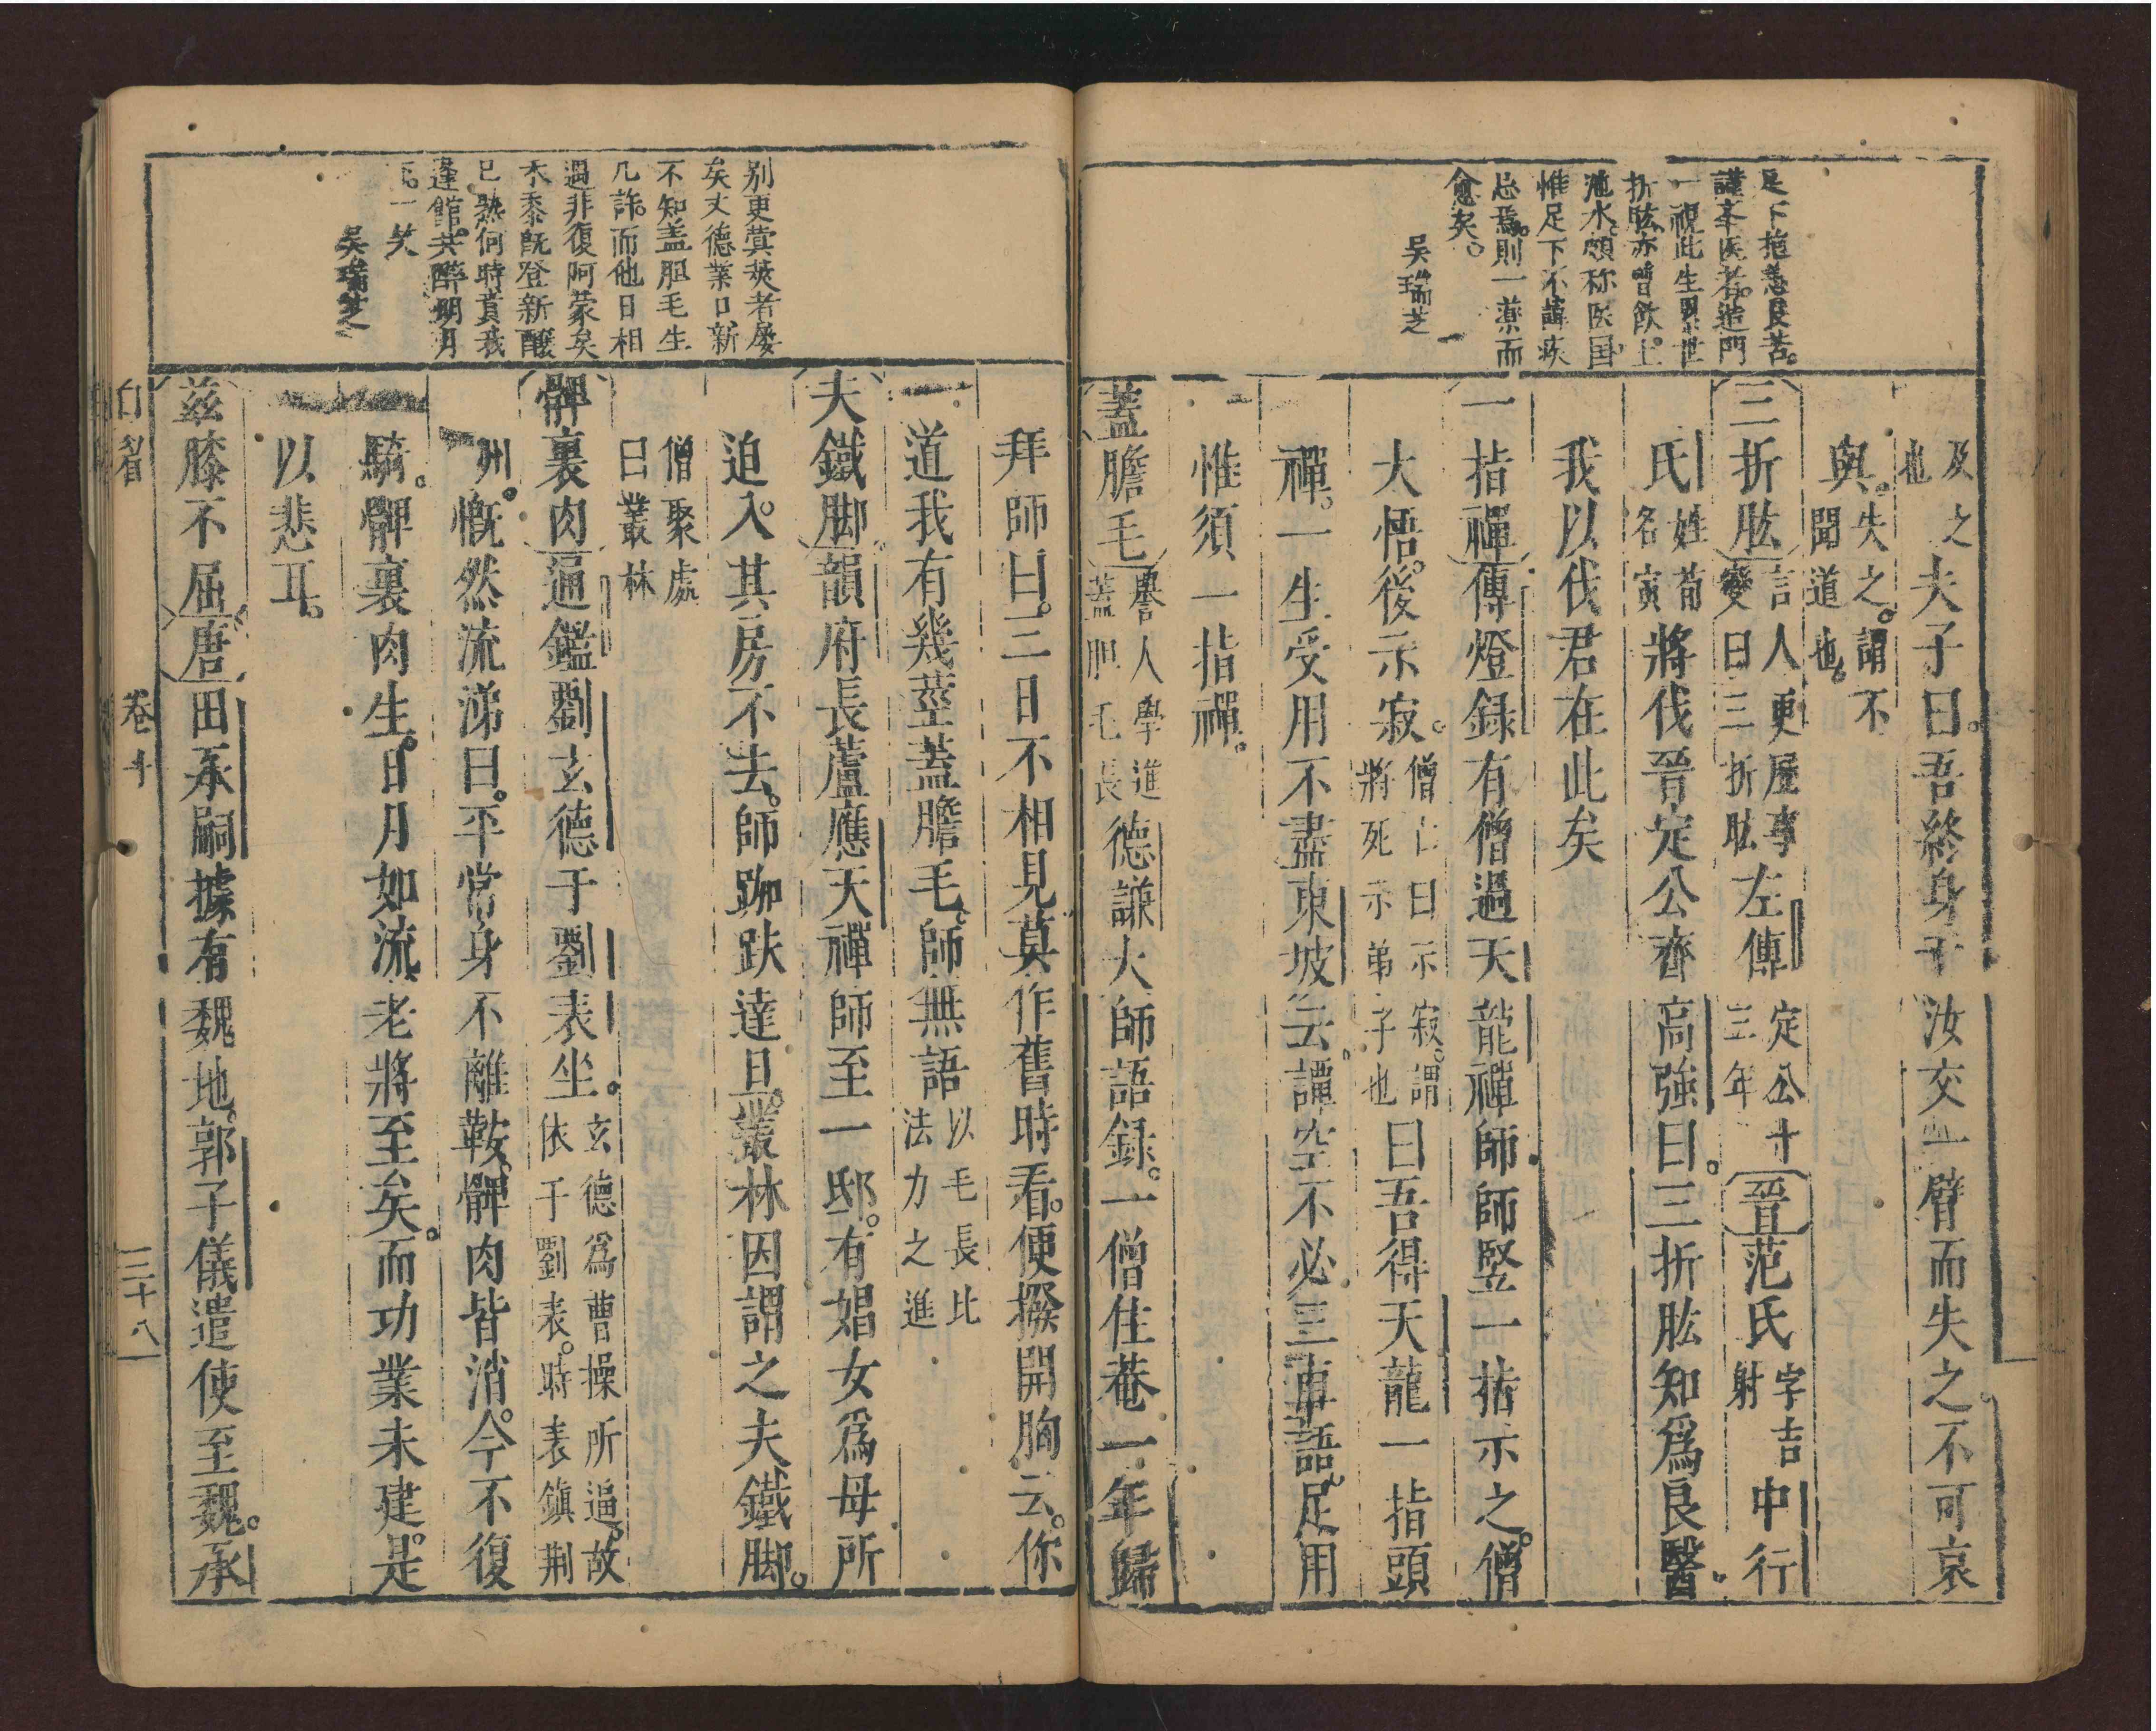 足下抱恙良苦。
謹奉医者造門
一視此生累世
折肱亦曾飲上
池水頗称医国
惟足下不諱疾
忌焉則一藥而
愈矣。
吳瑞芝
及之
也
夫子曰。吾終身于汝交一臂而失之。不可哀
與。
失之。謂不
聞道也。
三折肱
言人更歷事
變曰三折肱
左傳
定公十
三年
晉范氏
字吉
射
中行
氏
姓荀
名寅
將伐晉定公齊高強曰。三折肱知爲良醫
我以伐君在此矣
一指禪傳燈錄有僧過天龍禪師師竪一指示之。僧
大悟。後示寂。
僧亡曰示寂。謂
將死示弟子也
曰吾得天龍一指頭
禪。一生受用不盡東坡云。譚空不必三車語足用
惟須一指禪。
蓋膽毛
譽人學進
蓋胆毛長
德謙大師語録。一僧住菴一年歸
別更蓂莢者屢
矣丈德業日新
不知盖胆毛生
几許。而他日相
遇非復阿蒙矣
木黍旣登新釀
已熟何時賁我
蓬館。共醉明月
一笑
吳瑞芝
拜師曰。三日不相見莫作舊時看。便撥開胸云。你
道我有幾莖蓋膽毛師無語
以毛長比
法力之進
夫鐵脚韻府長蘆應天禪師至一邸。有娼女爲母所
迫入。其房不去。師跏趺達旦。叢林因謂之夫鐵脚。
僧聚處
曰叢林
髀裏肉通鑑劉玄德于劉表坐。
玄德爲曹操所逼。故
依于劉表。時表鎮荆
州。慨然流涕曰。平常身不離鞍髀肉皆消。今不復
騎。髀裏肉生。日月如流老將至矣。而功業未建。是
以悲耳。
兹膝不屈唐田承嗣據有魏地。郭子儀遣使至魏。承
卷十
三十八